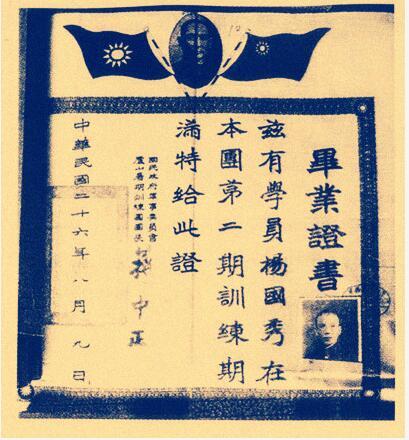 畢業證書
茲有學員楊國秀在
本團第二期訓練期
滿特給此證
國民政府軍事委員會
廬山暑期訓練團團長 蔣中正
中華民國二十六年八月九日